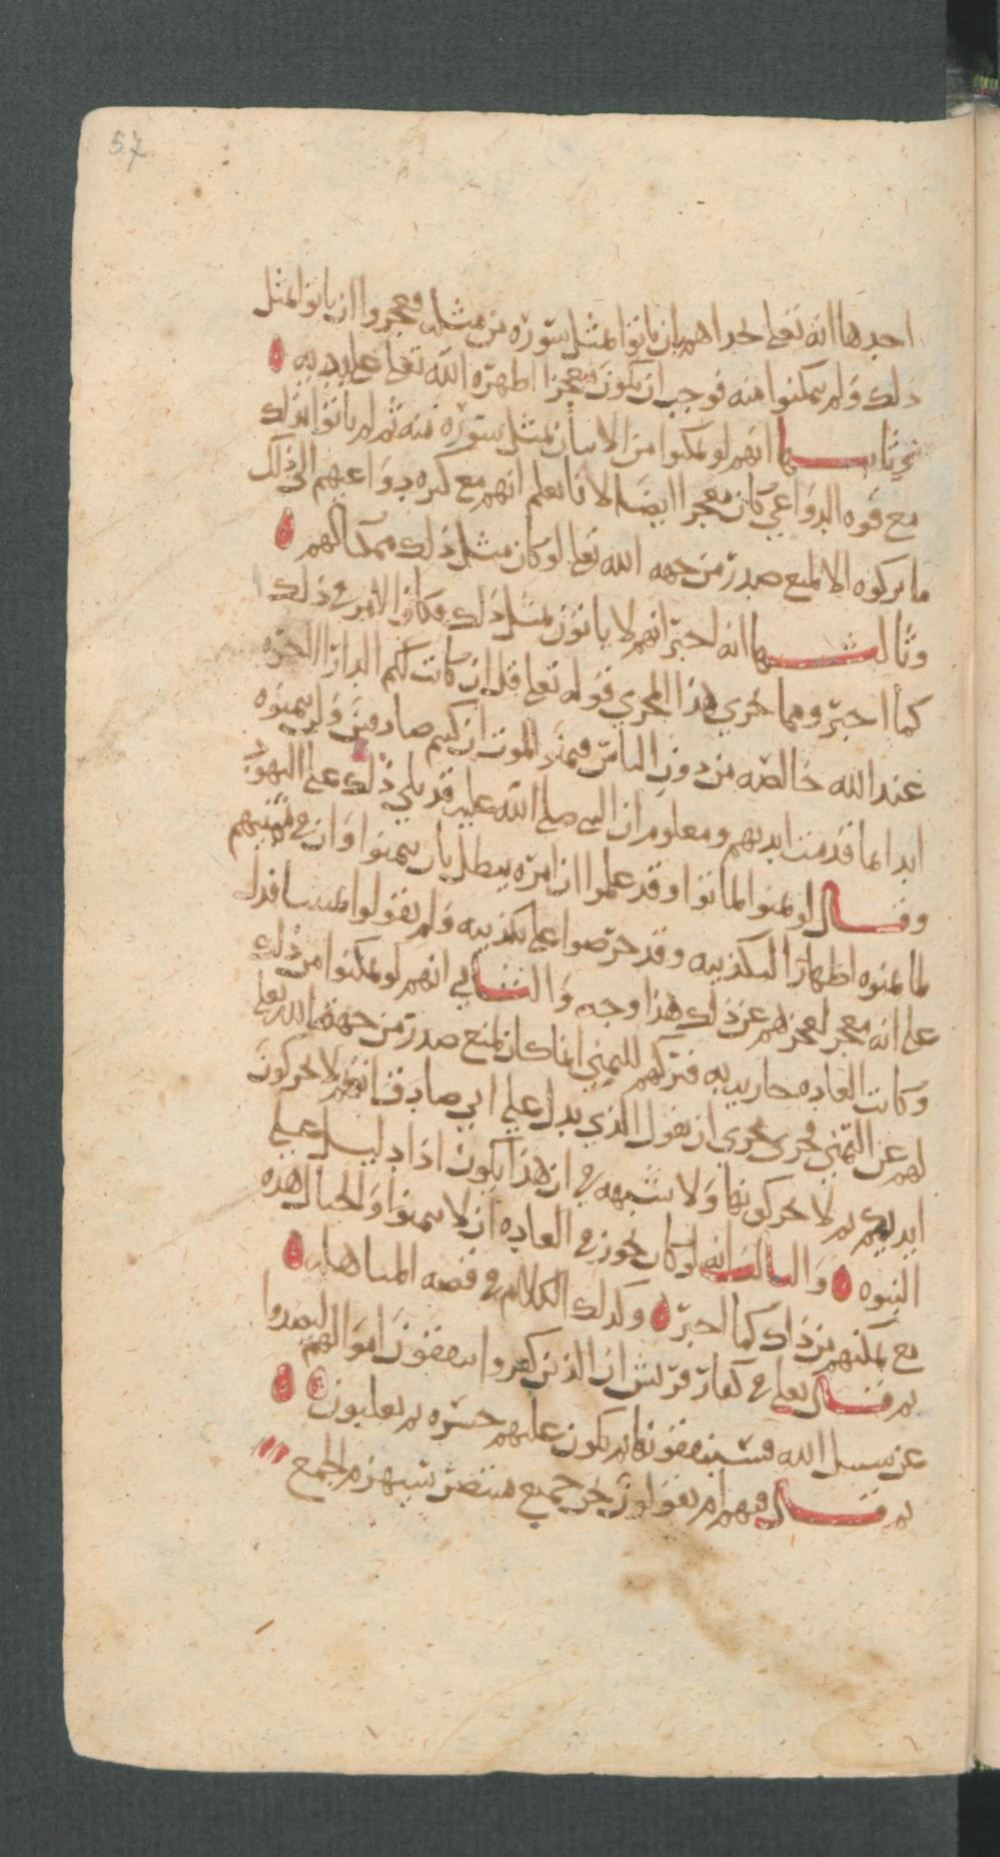 57
احدها انه تعلى تحداهم بان ياتوا بمثل سورة من مثله فعجزوا ان ياتوا بمثل
ذلك ولم يتمكنوا منه فوجب ان يكون معجزا اظهره الله تعلى على يديه
وثانيها انهم لو تمكنوا من الاتيان بمثل سورة منه ثم لم ياتوا بذلك
مع قوه الدواعي كان معجزا ايضا لانا نعلم انهم مع كثره دواعيهم الى ذلك
ما تركوه الا لمنع صدر من جهه الله تعلى لو كان مثل ذلك ممكنا لهم
وثالثها انه اخبر انهم لا ياتون بمثل ذلك فكان الامر في ذلك
كما اخبر ومما يجري هذا المجرى قوله تعلى قل ان كانت لكم الدار الاخره
عند الله خالصه من دون الناس فتمنوا الموت ان كنتم صادقين ولن يتمنوه
ابدا بما قدمت ايديهم ومعلوم ان النبي صلى الله عليه قد تلى ذلك على اليهود
وقال لو تمنوا لماتوا وقد علموا ان امره يبطل بان يتمنوا وان في تمنيهم
لما تمنوه اظهارا لتكذيبه وقد حرصوا على تكذيبه ولم يقولوا فدل
على انه معجز لعجزهم عن ذلك هذا وجه والثاني انهم لو تمكنوا من ذلك
وكانت العاده جاريه به فتركهم للتمني انما كان لمنع صدر من جهه الله تعلى
لهم عن التمني فجرى مجرى ان يقول الذي يدل على اني صادق انكم لا تحركون
ايديكم ثم لا يحركونها ولا شبهه في ان هذا يكون اذا دليل على
النبوه والثالث انه لو كان يجوز في العاده ان لا يتمنوا والحال هذه
مع تمكنهم من ذلك كما اخبر وكذلك الكلام في قصه المباهله
ثم قال تعلى في كفار قريش ان الذين كفروا ينفقون اموالهم ليصدوا
عن سبيل الله فسينفقونها ثم تكون عليهم حسره ثم يغلبون
ثم قال فيهم ام يقولون نحن جميع منتصر سيهزم الجمع